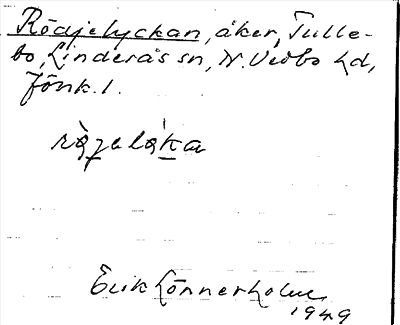 Rödjelyckan, åker, Tulle-
bo, Linderås sn, N. Vedbo hd,
Jönk. l.
Erik Lönnerholm
1949